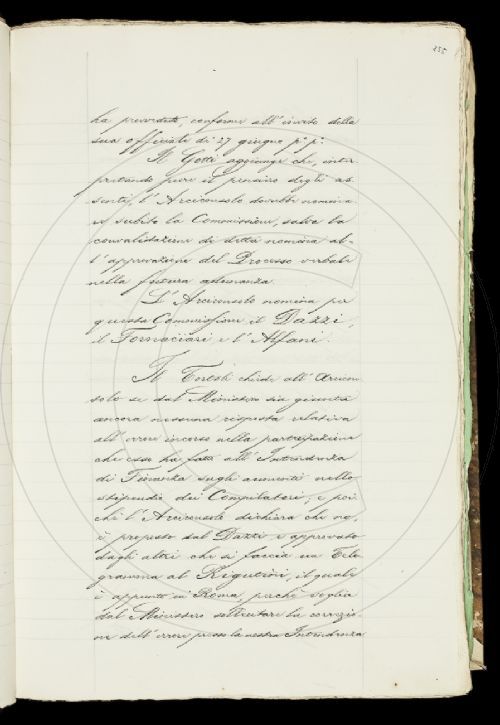 255
ha preveduto, conforme all'invito della
sua officiale di 27 giugno p.º p.º
Il Gotti aggiunge che, inter
pretando pure il pensiero degli as
senti, l'Arciconsolo dovrebbe nomina
re subito la Commissione, salva la
convalidazione di detta nomina al-
l'approvazione del Processo verbale
nella futura adunanza.
L'Arciconsolo nomina per
questa Commissione il Dazzi,
il Fornaciari e l'Alfani.
Il Tortoli chiede all'Arcicon
solo se dal Ministero sia giunta
ancora nessuna risposta relativa
all'errore incorso nella partecipazione
che esso ha fatta all'Intendenza
di Finanza sugli aumenti nello
stipendio dei Compilatori; e poi
chè l'Arciconsolo dichiara che no,
è proposto dal Dazzi e approvato
dagli altri che si faccia un Tele
gramma al Rigutini, il quale
è appunto in Roma, perchè voglia
dal Ministero sollecitare la correzio-
ne dell'errore presso la nostra Intendenza